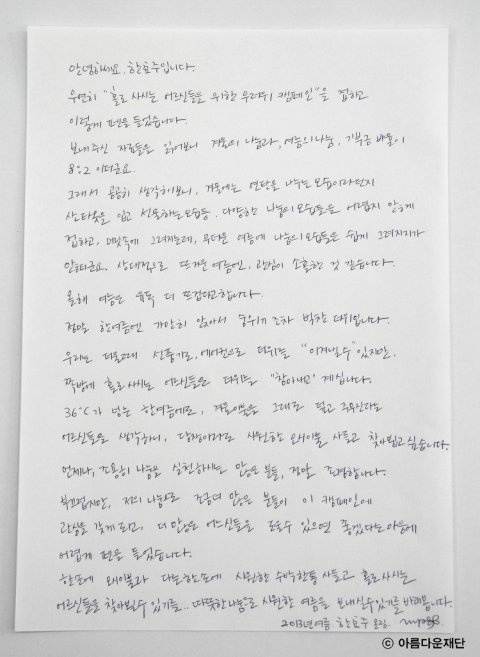 안녕하세요. 한효주입니다.
우연히 "홀로 사시는 어르신들을 위한 무더위 캠페인"을 접하고
이렇게 펜을 들었습니다.
보내주신 자료들을 읽어보니 겨울의 나눔과, 여름의 나눔, 기부금 비율이
8:2 이더군요.
그래서 곰곰히 생각해보니, 겨울에는 연탄을 나누는 모습이라던지
산타옷을 입고 선물하는 모습등. 다양한 나눔의 모습들을 어렵지 않게
접하고, 머릿속에 그려지는데, 무더운 여름에 나눔의 모습들은 쉽게 그려지지가
않더군요. 상대적으로 뜨거운 여름엔, 관심이 소홀한 것 같습니다.
올해 여름은 유독 더 뜨겁다고합니다.
정말 한여름엔 가만히 앉아서 숨쉬기 조차 벅찬 더위입니다.
우리는 때론 선풍기로, 에어컨으로 더위를 "이겨낼수" 있지만,
쪽방에 홀로 사시는 어르신들은 더위를 "참아내고" 계십니다.
36°C가 넘는 한여름에도, 겨울이불을 그대로 덮고 주무신다는
어르신들을 생각하니, 당장이라도 시원한 모시이불 사들고 찾아뵙고 싶습니다.
언제나, 조용히 나눔을 실천하시는 많은 분들, 정말 존경합니다.
부끄럽지만, 저의 나눔으로 조금더 많은 분들이 이 캠페인에
관심을 갖게되고, 더 많은 어르신들을 도울수 있으면 좋겠다는 마음에
어렵게 펜을 들었습니다.
한손에 모시이불과 다른한손에 시원한 수박한통 사들고 홀로 사시는
어르신들을 찾아뵐수 있기를.. 따뜻한 나눔으로 시원한 여름을 보내실수있기를 바래봅니다.
2013년여름 한효주 올림.
© 아름다운재단